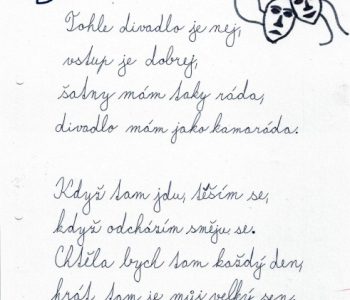 Tohle divadlo je nej,
vstup je dobrej,
šatny mám taky ráda,
divadlo mám jako kamaráda.
Když tam jdu, těším se,
když odcházím směju se.
Chtěla bych tam každý den,
hrát tam je můj velký sen,